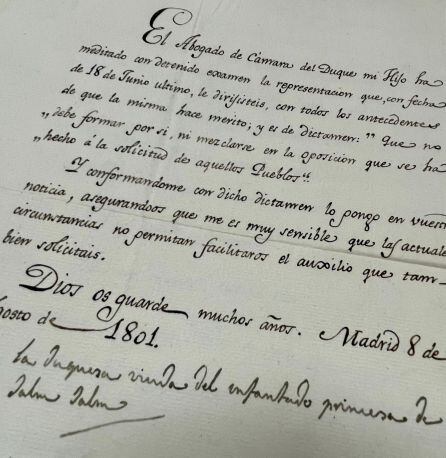 El Abogado de Cámara del Duque mi Hijo ha
meditado con detenido examen la representacion que, con fecha
de 18 de Junio ultimo, le dirijisteis, con todos los antecedentes
de que la misma hace merito; y es de dictamen: " Que no
" debe formar por si, ni mezclarse en la oposicion que se ha
" hecho á la solicitud de aquellos Pueblos".
Y conformandome con dicho dictamen lo pongo en vuestr
noticia, asegurandoos que me es muy sensible que las actuale
circunstancias no permitan facilitaros el auxilio que tam-
bien solicitais.
Dios os guarde muchos años. Madrid 8 de
osto de 1801.
La Duquesa viuda del infantado princesa de
Salm Salm